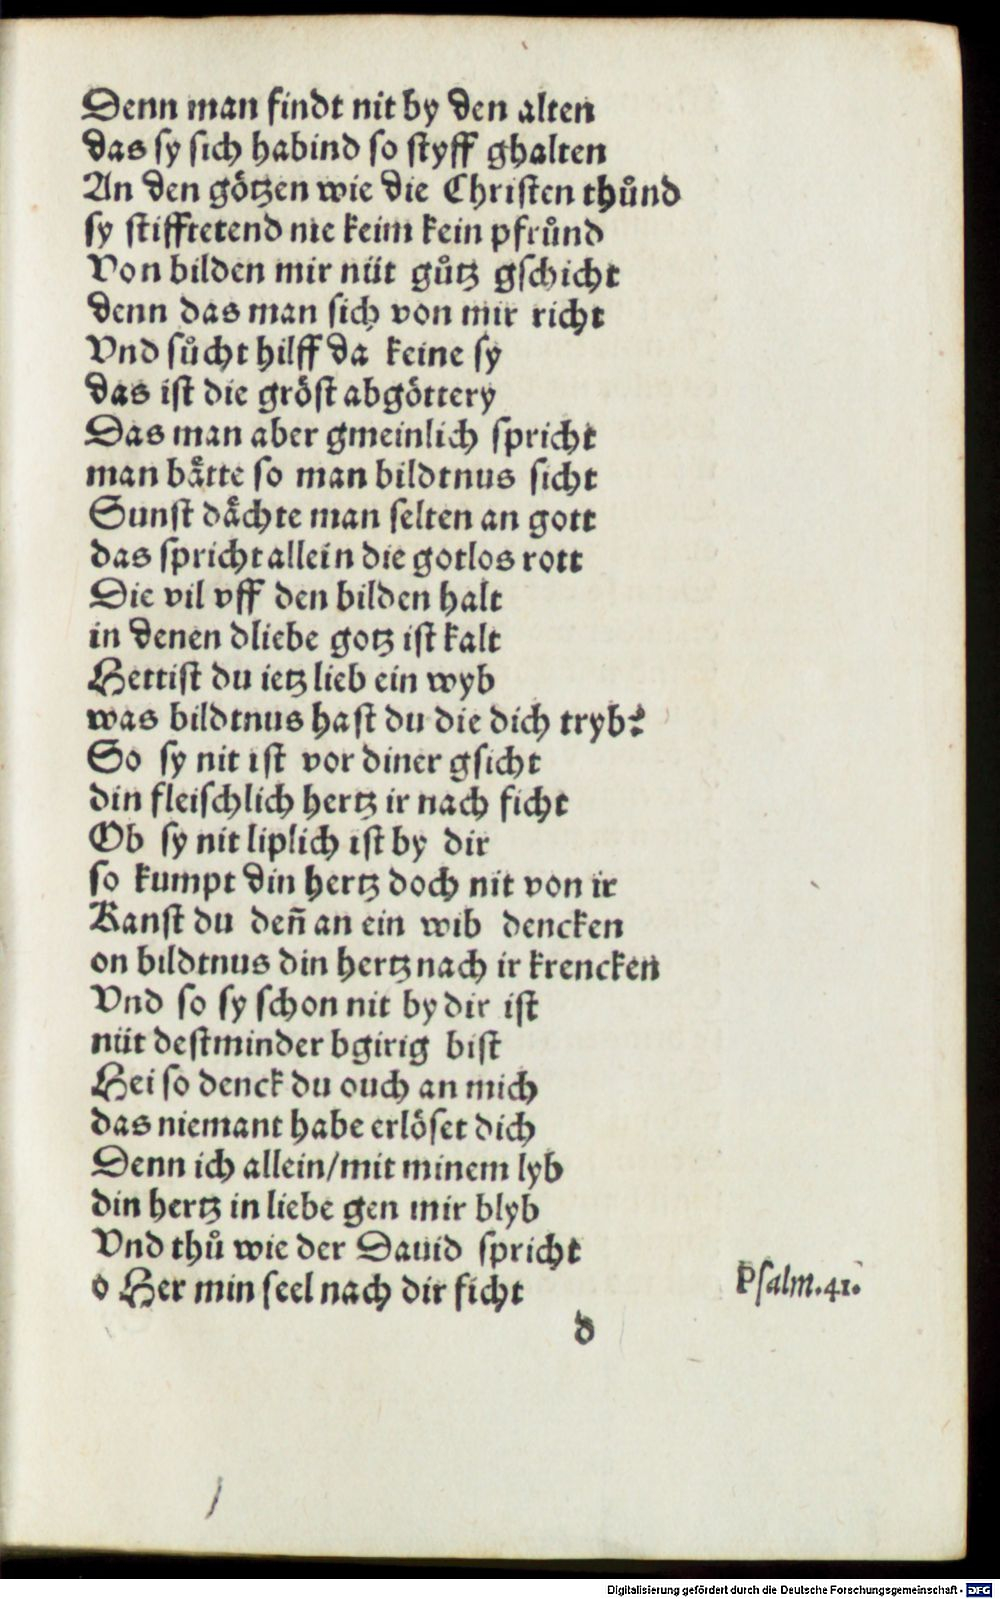 Denn man findt nit by den alten
das sy sich habind so styff ghalten
An den götzen wie die Christen thůnd
sy stifftetend nie keim kein pfrůnd
Von bilden mir nüt gůtz gschicht
denn das man sich von mir richt
Vnd sůcht hilff da keine sy
das ist die gröst abgöttery
Das man aber gmeinlich spricht
man båtte so man bildtnus sicht
Sunst dåchte man selten an gott
das spricht allein die gotlos rott
Die vil vff den bilden halt
in denen dliebe gotz ist kalt
Hettist du ietz lieb ein wyb
was bildtnus hast du die dich tryb?
So sy nit ist vor diner gsicht
din fleischlich hertz ir nach ficht
Ob sy nit liplich ist by dir
so kumpt din hertz doch nit von ir
Kanst du den̄ an ein wib dencken
on bildtnus din hertz nach ir krencken
Vnd so sy schon nit by dir ist
nüt destminder bgirig bist
Hei so denck du ouch an mich
das niemant habe erlöset dich
Denn ich allein/mit minem lyb
din hertz in liebe gen mir blyb
Vnd thů wie der Dauid spricht
o Her min seel nach dir ficht
Psalm.41.
d
Digitalisierung gefördert durch die Deutsche Forschungsgemeinschaft - DFG